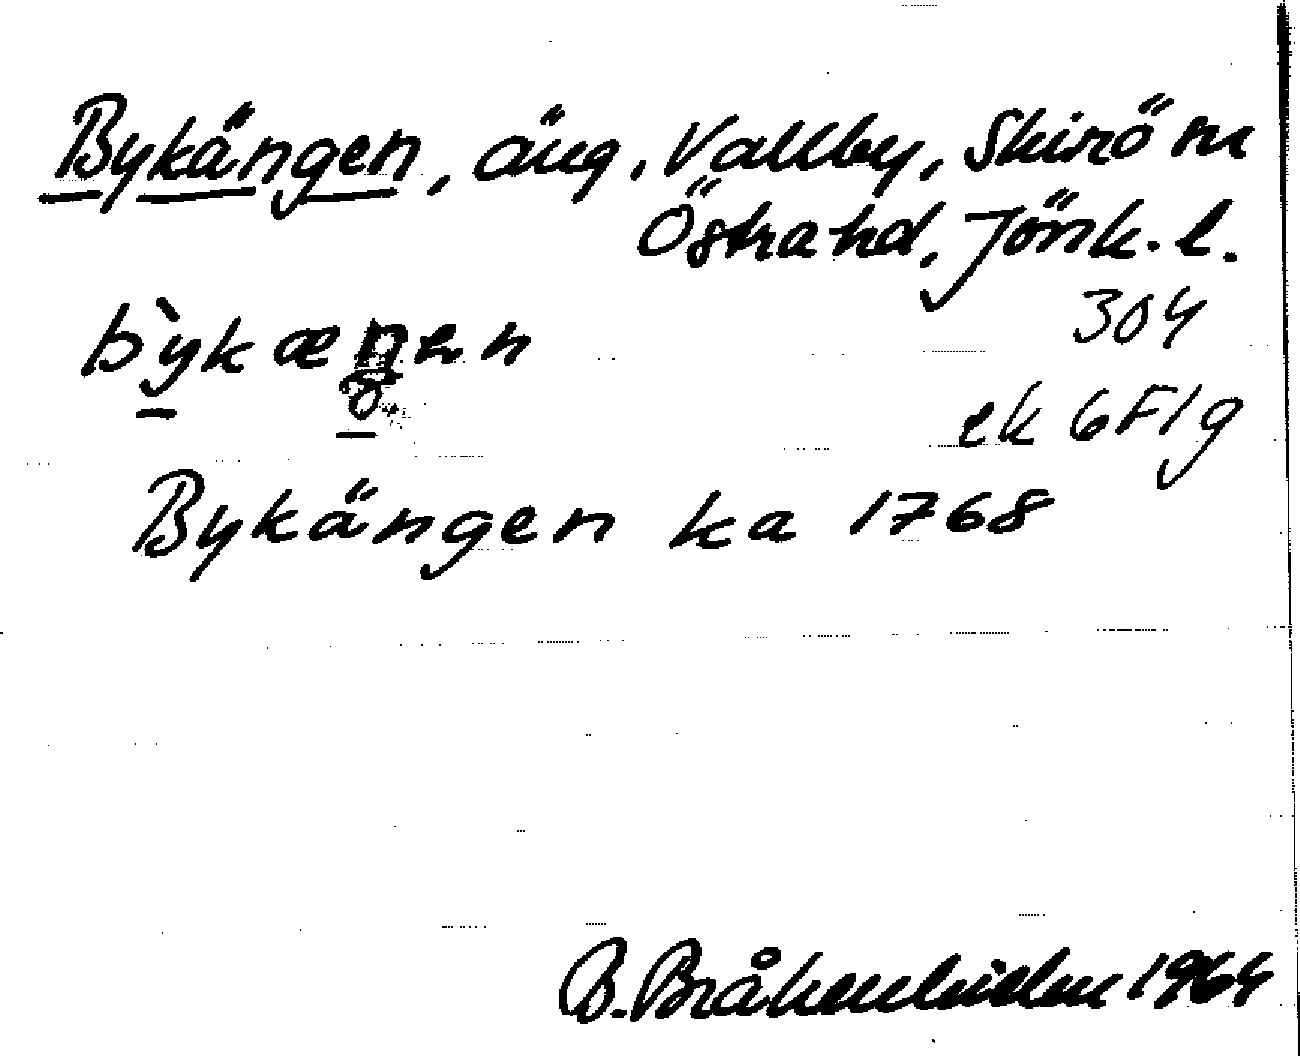 Bykängen, äng, Vallby, Skirö sn
Östra hd, Jönk. l.
304
bỳkæŋen
ek 6F1g
Bykängen ka 1768
B. 1964